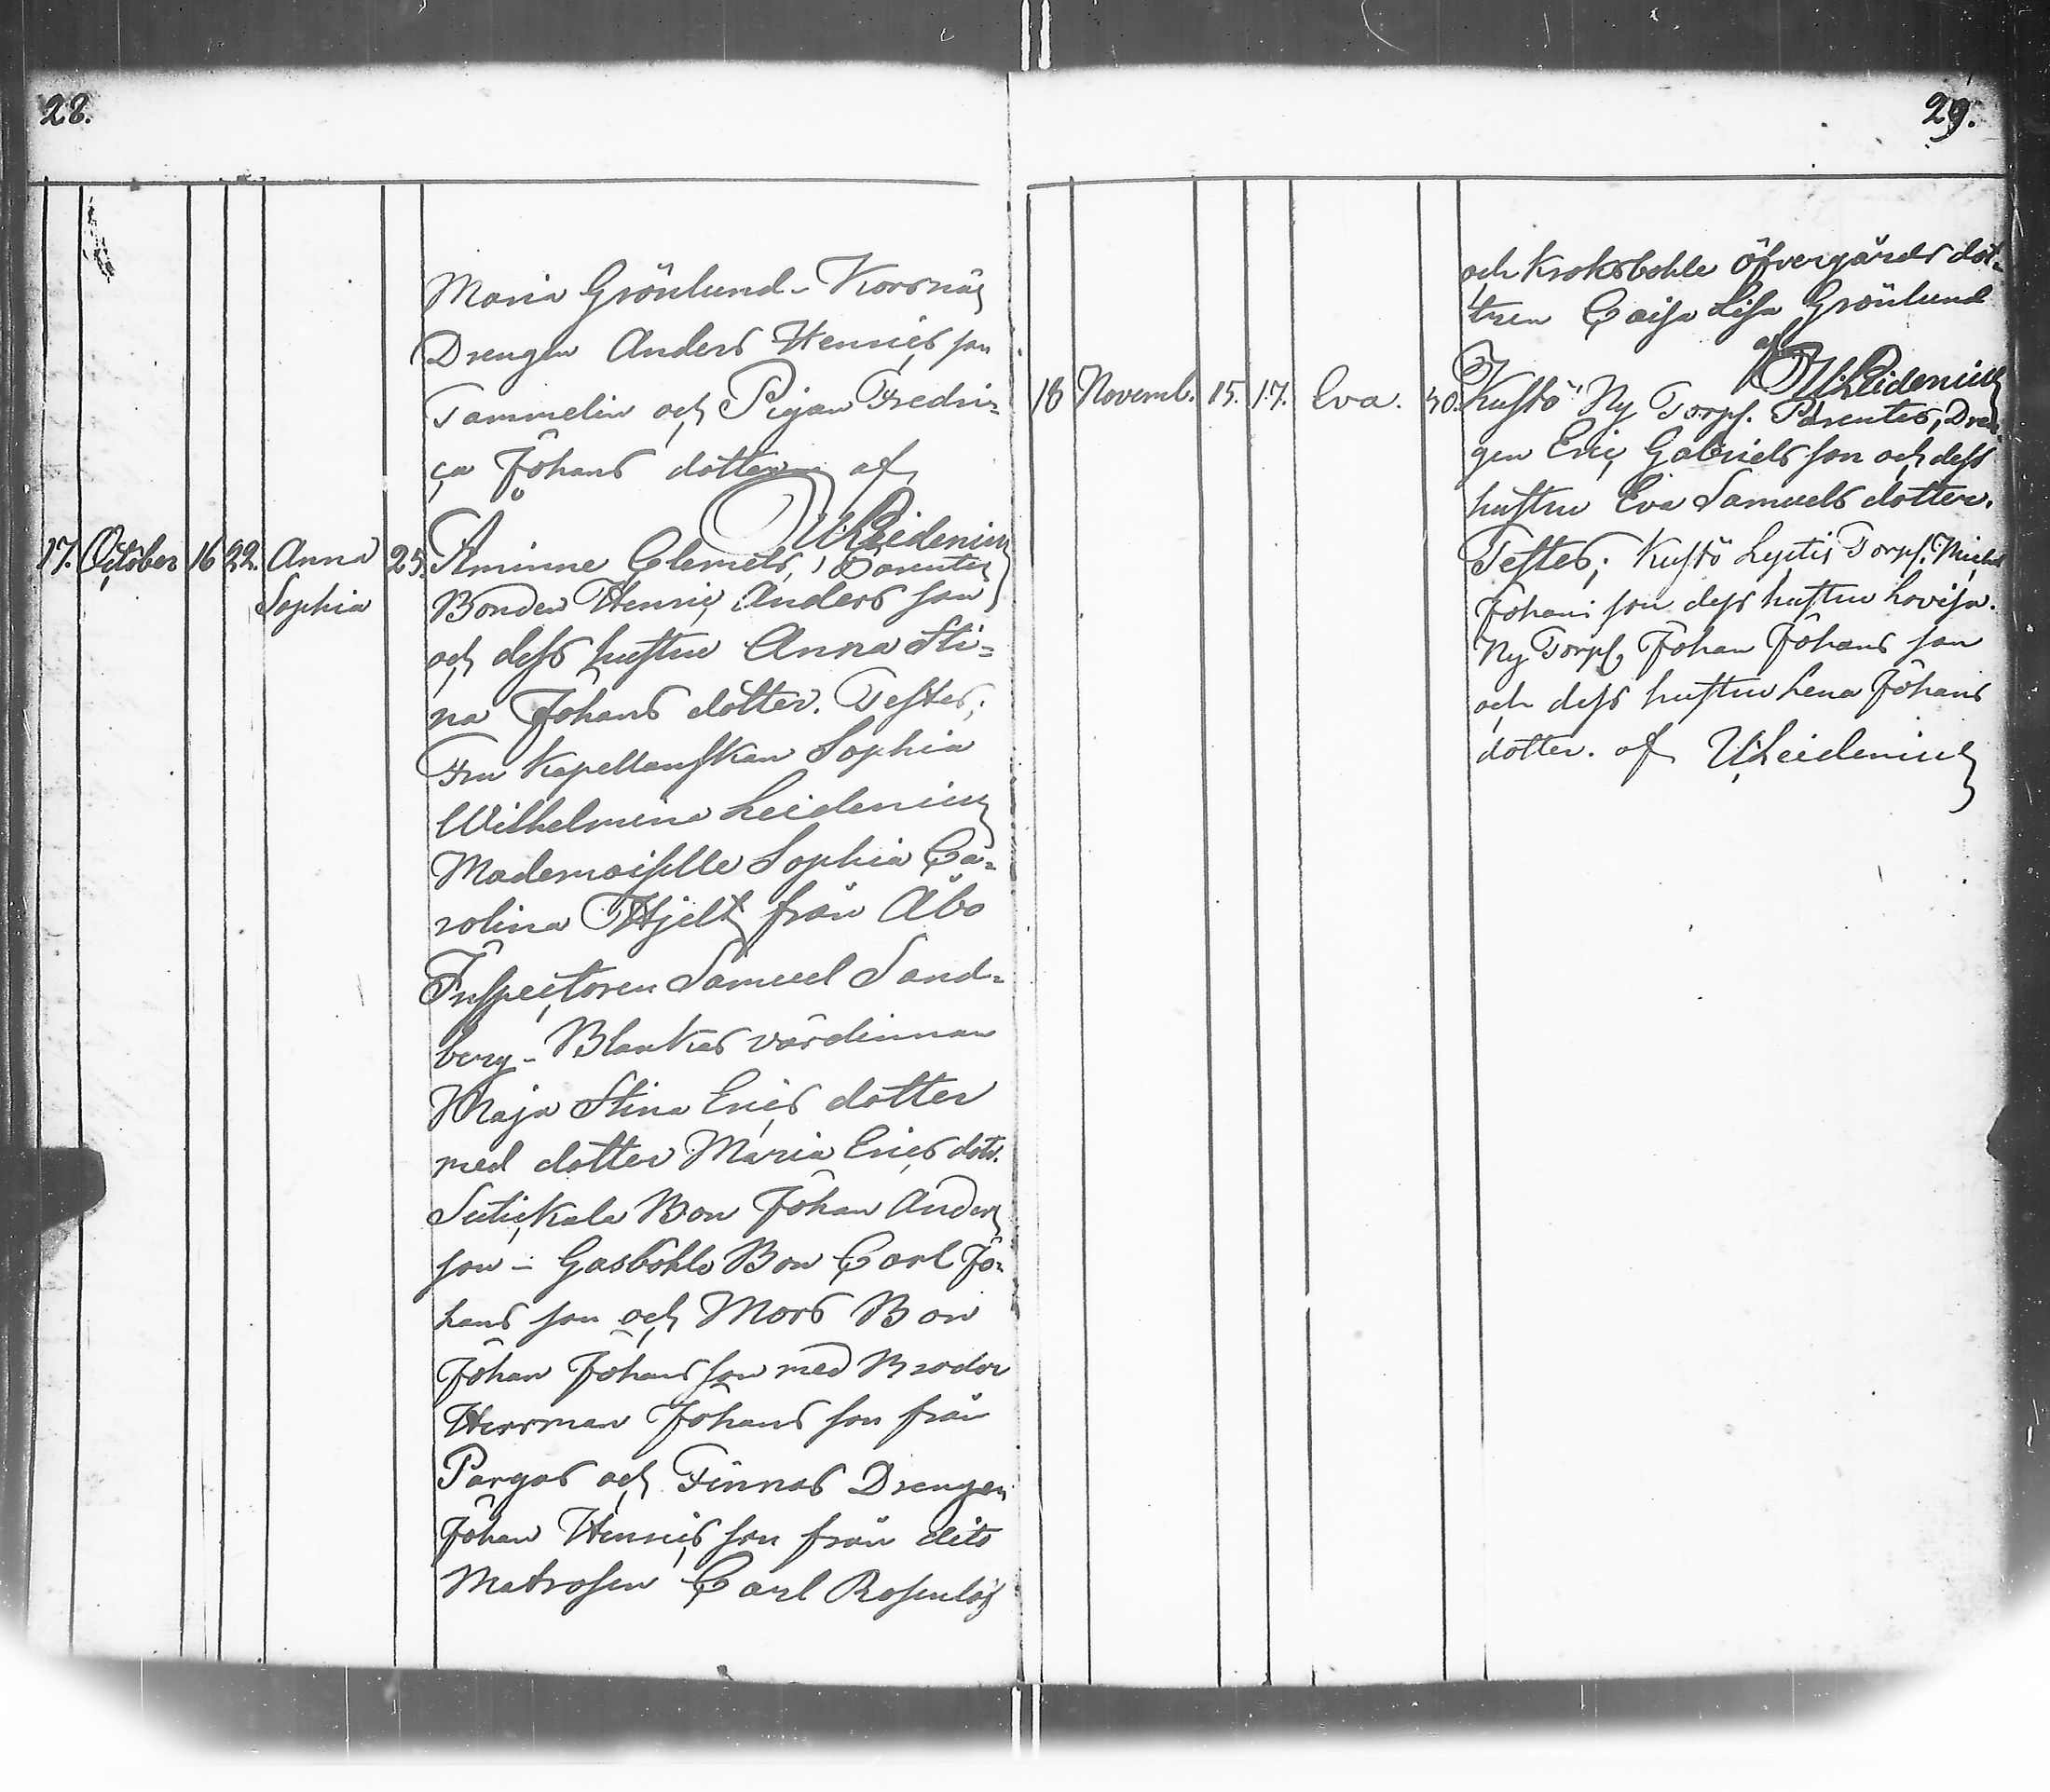 28.
Maria Grönlund - Korsnäs
Drengen Anders Henrics son
Tammelin och Pigan Fredri=
ca Johans dotter af
U:Leidenius
17. October 16 22. Anna 25. Aminne Clemets, Parentes
Sophia Bonden Henric Anders son
och dess hustru Anna Sti=
na Johans dotter. Testes;
Fru Kapellanskan Sophia
Wilhelmina Leidenius
Mademoiselle Sophia Ca=
rolina Hjelt från Åbo
Inspectoren Samuel Sand=
berg - Blankas värdinnan
Maja Stina Erics dotter
med dotter Maria Erics dotr.
Sutickala Bon Johan Anders
son - Gasbohle Bon Carl Jo=
hans son och Mors Bon
Johan Johans son med Broder
Herrman Johans son från
Pargas och Finnas Drengen
Johan Henrics son från dito
Matrosen Carl Rosenlöf
29.
och Kroksbohle öfvergårds dot=
tren Caisa Lisa Grönlund
af U:Leidenius
18 Novemb. 15. 17. Eva. 30. Kustö Ny Torps. Parentes, Dren=
gen Eric Gabriels son och dess
hustru Eva Samuels dotter.
Testes; Kustö Leptis Torps. Michel
Johans son dess hustru Lovisa.
Ny Torps, Johan Johans son
och dess hustru Lena Johans
dotter. af U:Leidenius